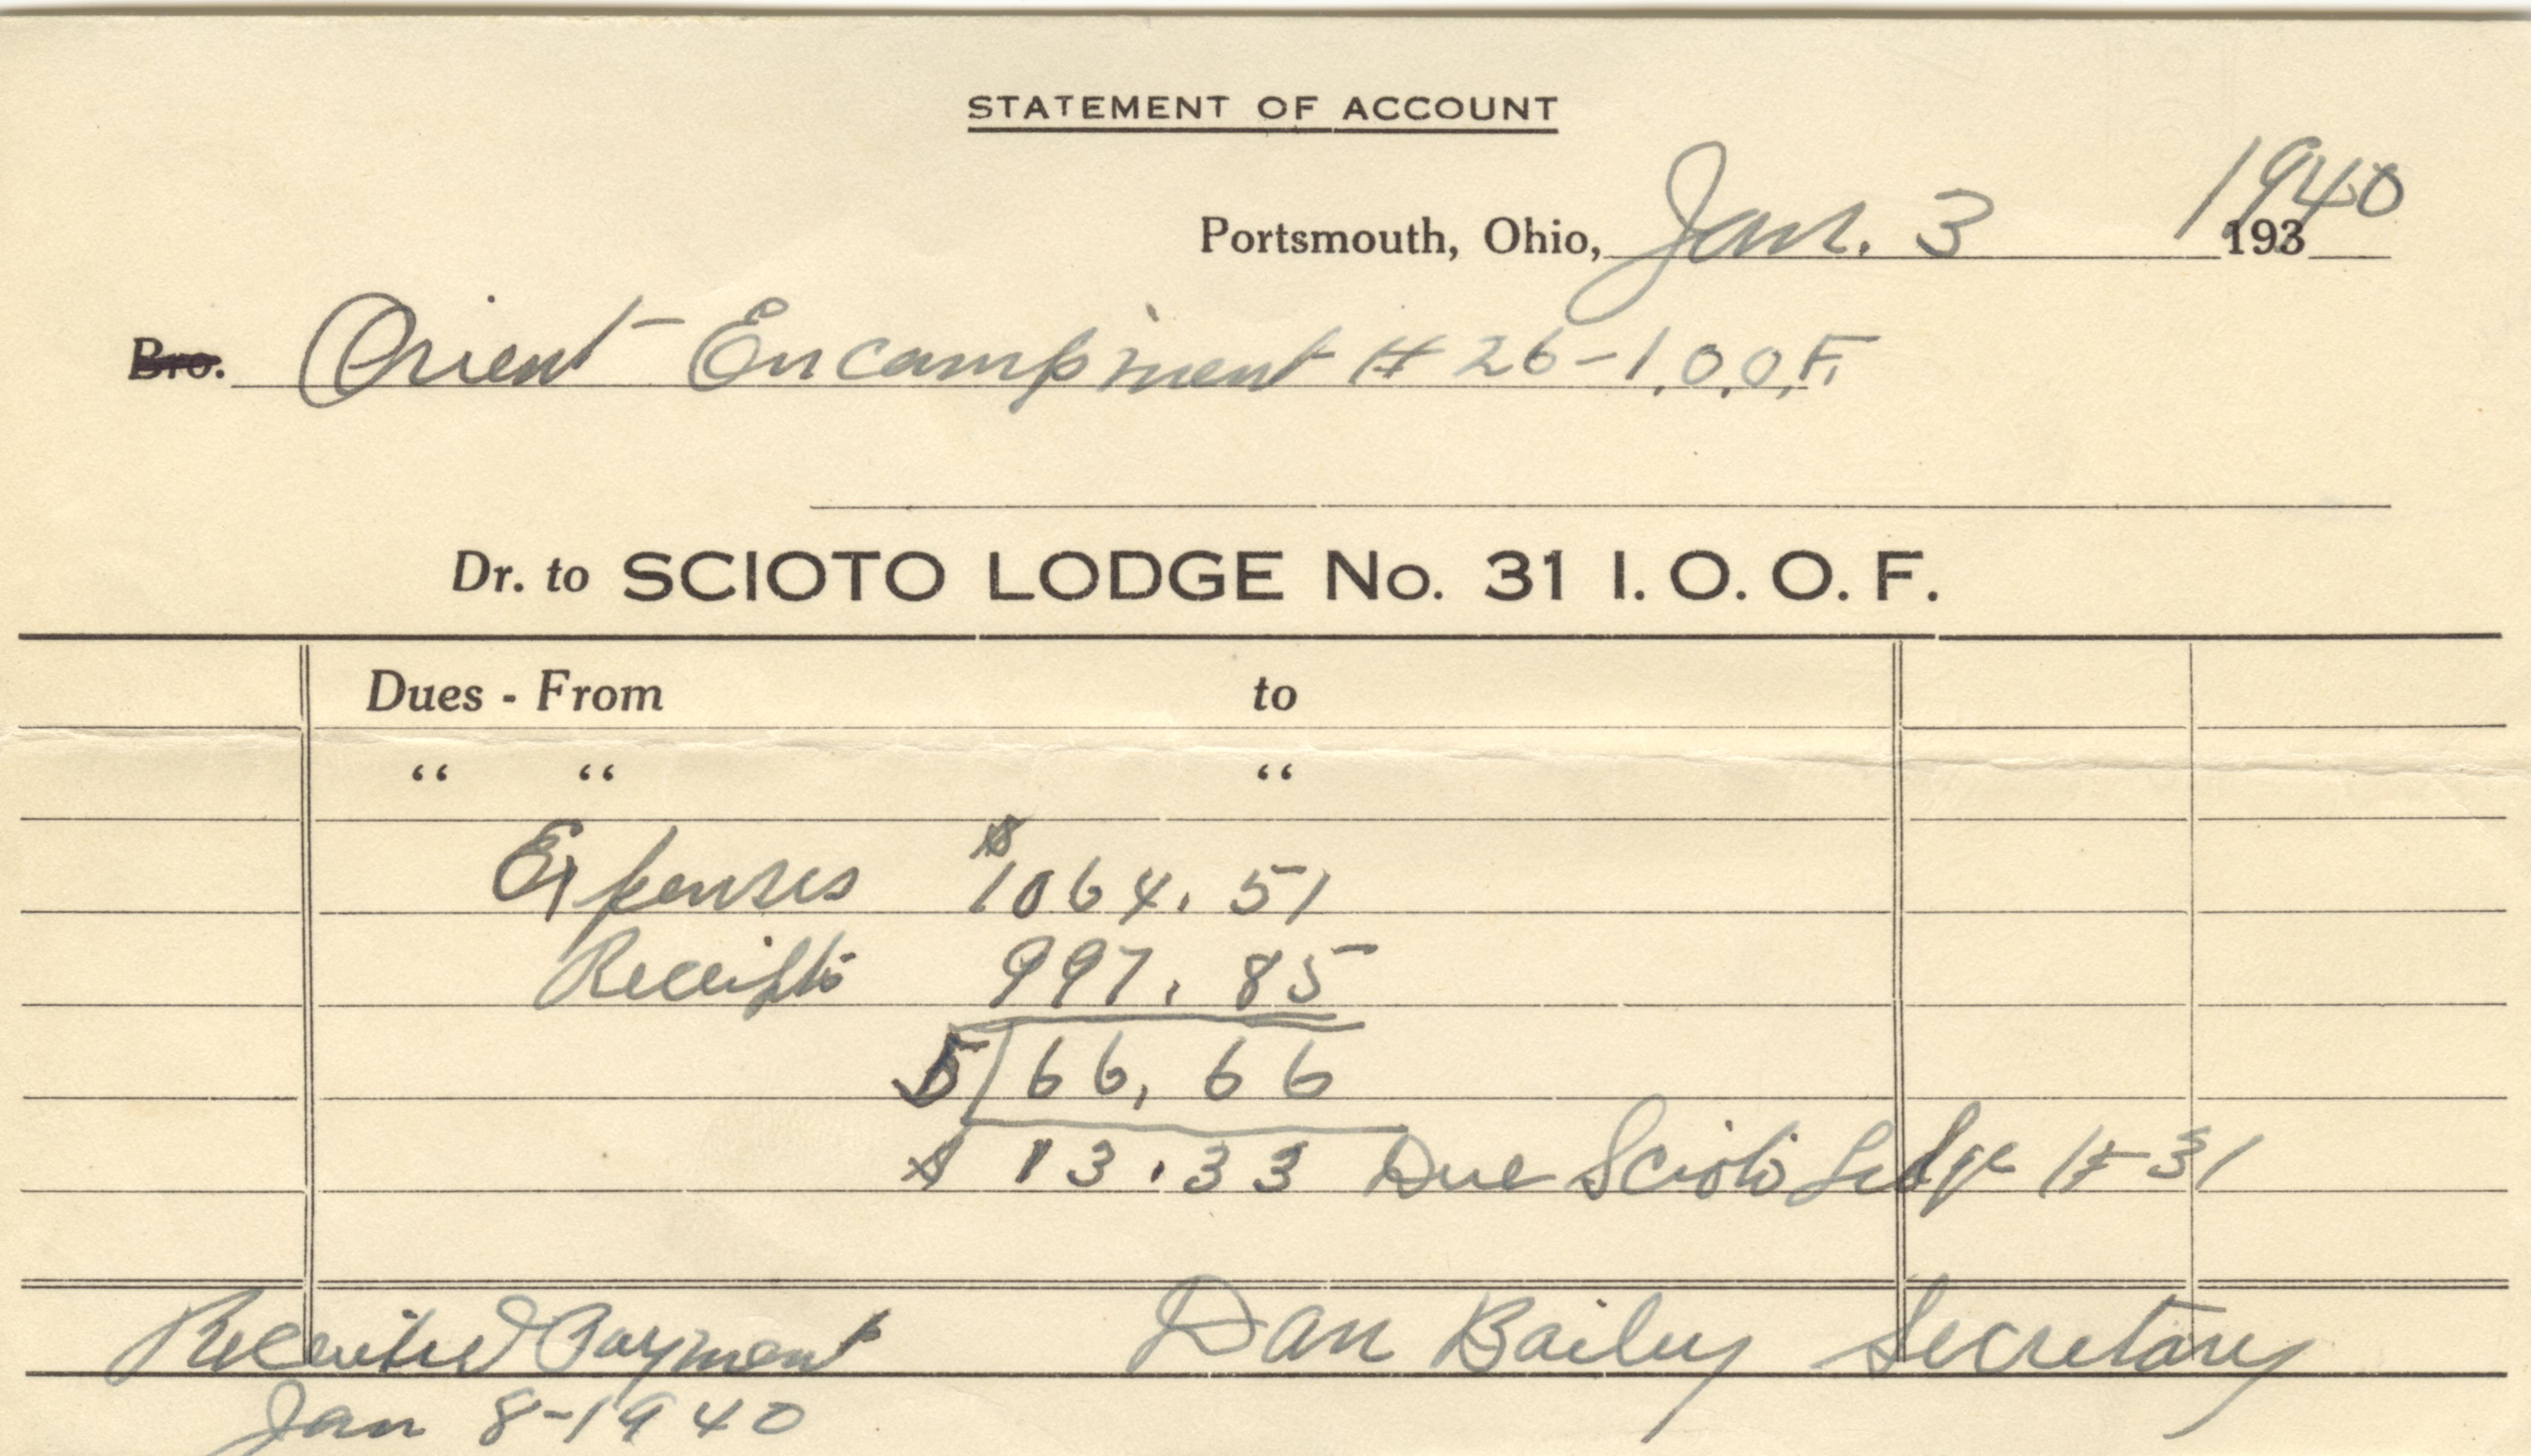 STATEMENT OF ACCOUNT
Portsmouth, Ohio, Jan. 3 1940 193
Bro. Orient Encampment # 26 - I.O.O.F.
Dr. to SCIOTO LODGE No. 31 I. O. O. F.
Dues - From to
“ “ “
Expenses $1064.51
Receipts 997.85
5 66.66
$ 13.33 Due Scioto Lodge # 31
Received Payment Dan Bailey Secretary
Jan 8-1940